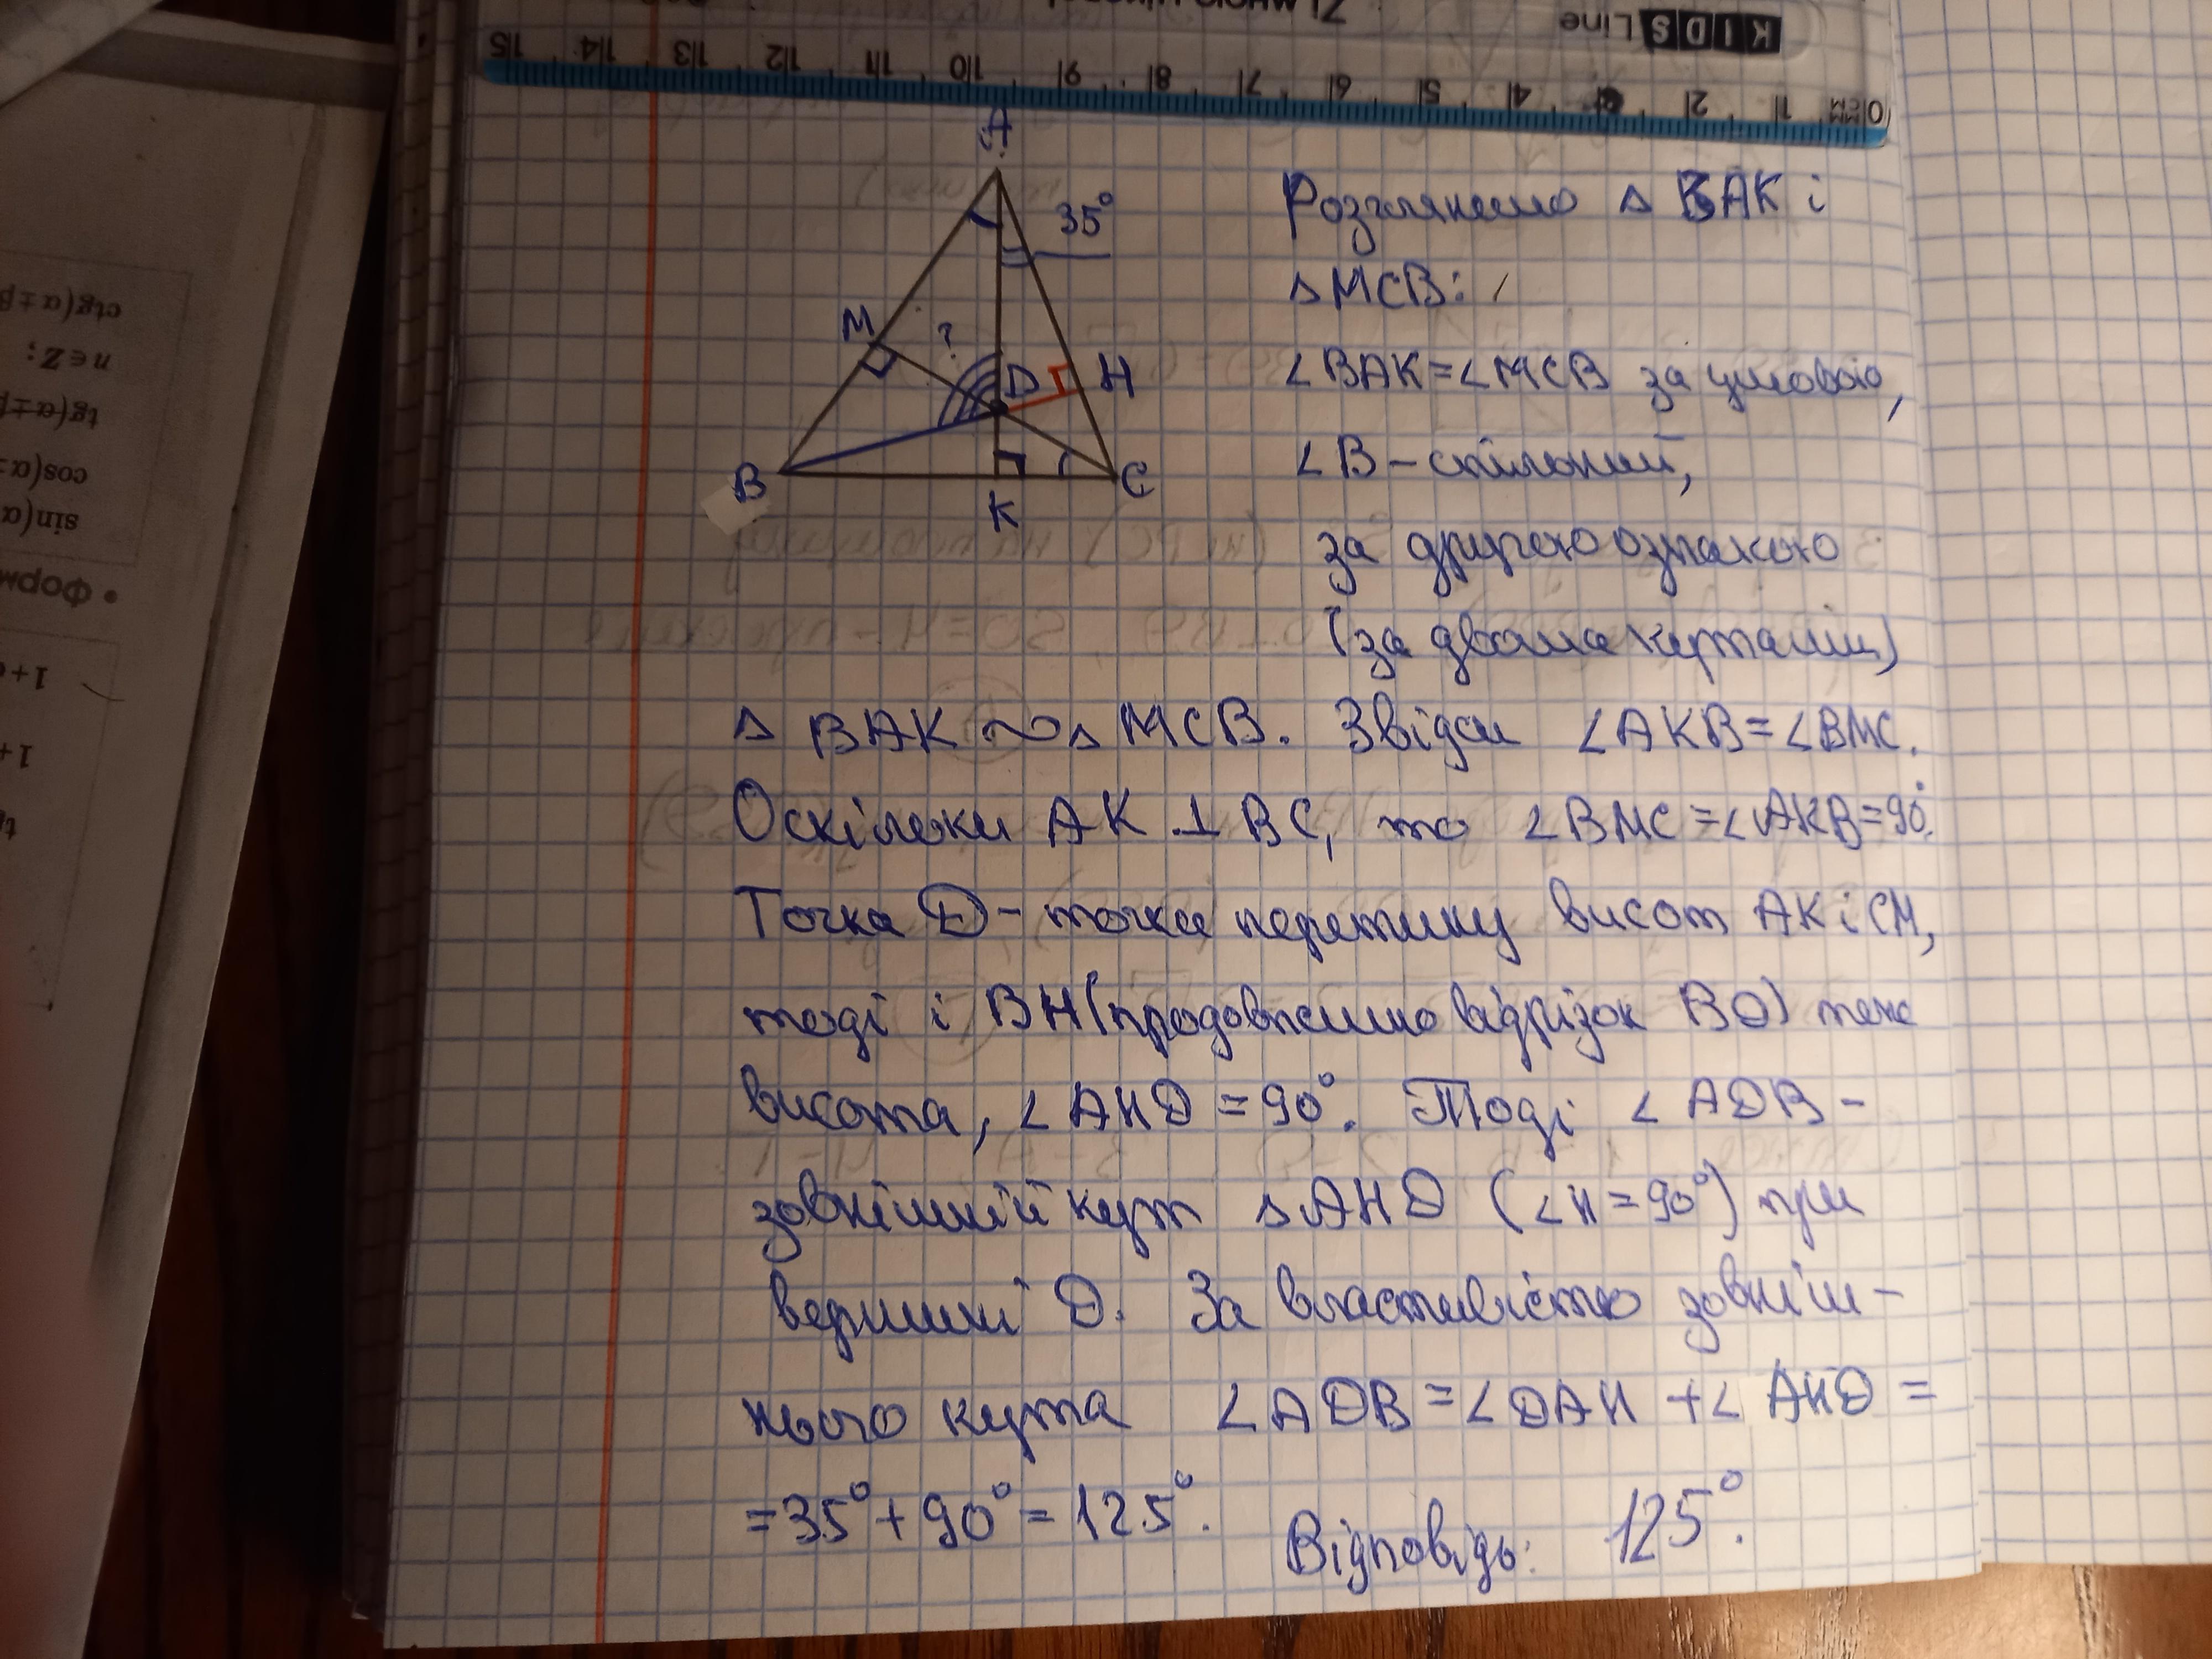 KIDS Line
0 мм см 1 2 3 4 5 6 7 8 9 10 11 12 13 14 15
A
35°
M
?
D
H
B
K
C
Розглянемо △ BAK і
△MCB:
∠BAK=∠MCB за умовою,
∠B-спільний,
за другою ознакою
(за двома кутами)
△ BAK ~ △ MCB. Звідси ∠AKB=∠BMC.
Оскільки AK ⊥ BC, то ∠BMC=∠AKB=90°.
Точка D-точка перетину висот AK і CM,
тоді і BH(продовжимо відрізок BD) теж
висота, ∠AHD=90°. Тоді ∠ADB-
зовнішній кут △AHD (∠H=90°) при
вершині D. За властивістю зовніш-
нього кута ∠ADB=∠DAH+∠AHD=
=35°+90°=125°. Відповідь: 125°.
ctg(α∓β
n∈Z;
tg(α∓β
cos(α
sin(α
• Форм
1+c
1+
t